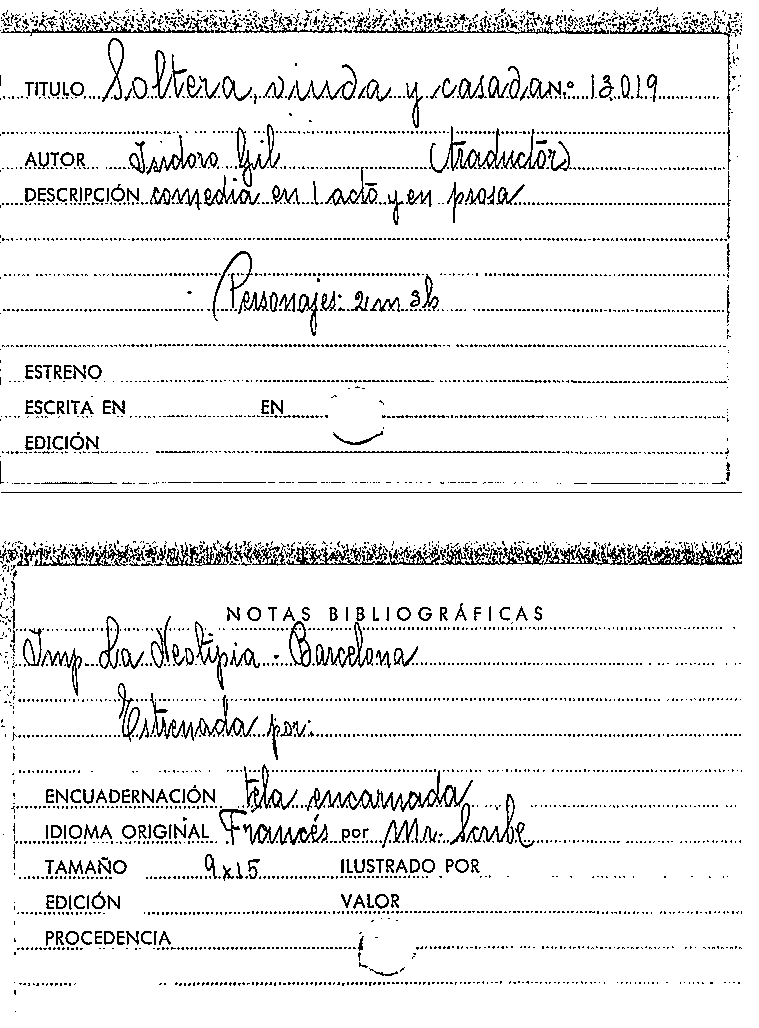 TITULO Soltera, viuda y casada N.º 13019
AUTOR Isidoro Gil (traductor)
DESCRIPCIÓN comedia en 1 acto y en prosa
Personajes: 2 m 3 h
ESTRENO
ESCRITA EN EN
EDICIÓN
NOTAS BIBLIOGRÁFICAS
Imp. La Neotipia - Barcelona
Estrenada por:
ENCUADERNACIÓN tela encarnada
IDIOMA ORIGINAL Francés por Mr. Scribe
TAMAÑO 9x15 ILUSTRADO POR
EDICIÓN VALOR
PROCEDENCIA